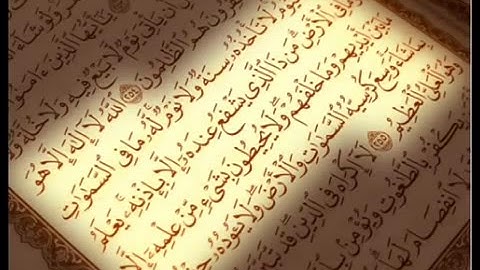 يَٰٓأَيُّهَا ٱلَّذِينَ ءَامَنُوٓا۟
أَن يَأْتِىَ يَوْمٌ لَّا بَيْعٌ فِيهِ وَلَا خُلَّةٌ وَلَا
هُمُ ٱلظَّٰلِمُونَ ۝٢٥٤ ٱللَّهُ لَآ إِلَٰهَ إِلَّا هُوَ
لَا تَأْخُذُهُۥ سِنَةٌ وَلَا نَوْمٌ لَّهُۥ مَا فِى ٱلسَّمَٰوَٰتِ
فِى ٱلْأَرْضِ مَن ذَا ٱلَّذِى يَشْفَعُ عِندَهُۥٓ إِلَّا بِإِذْنِهِۦ يَعْلَمُ
بَيْنَ أَيْدِيهِمْ وَمَا خَلْفَهُمْ وَلَا يُحِيطُونَ بِشَىْءٍ مِّنْ عِلْمِهِۦٓ إِلَّا
بِمَا شَآءَ وَسِعَ كُرْسِيُّهُ ٱلسَّمَٰوَٰتِ وَٱلْأَرْضَ وَلَا يَـُٔودُهُۥ
وَهُوَ ٱلْعَلِىُّ ٱلْعَظِيمُ ۝٢٥٥ لَآ إِكْرَاهَ فِى ٱلدِّينِ قَد تَّبَيَّنَ
يَكْفُرْ بِٱلطَّٰغُوتِ وَيُؤْمِنۢ
لَا ٱنفِصَامَ لَهَا